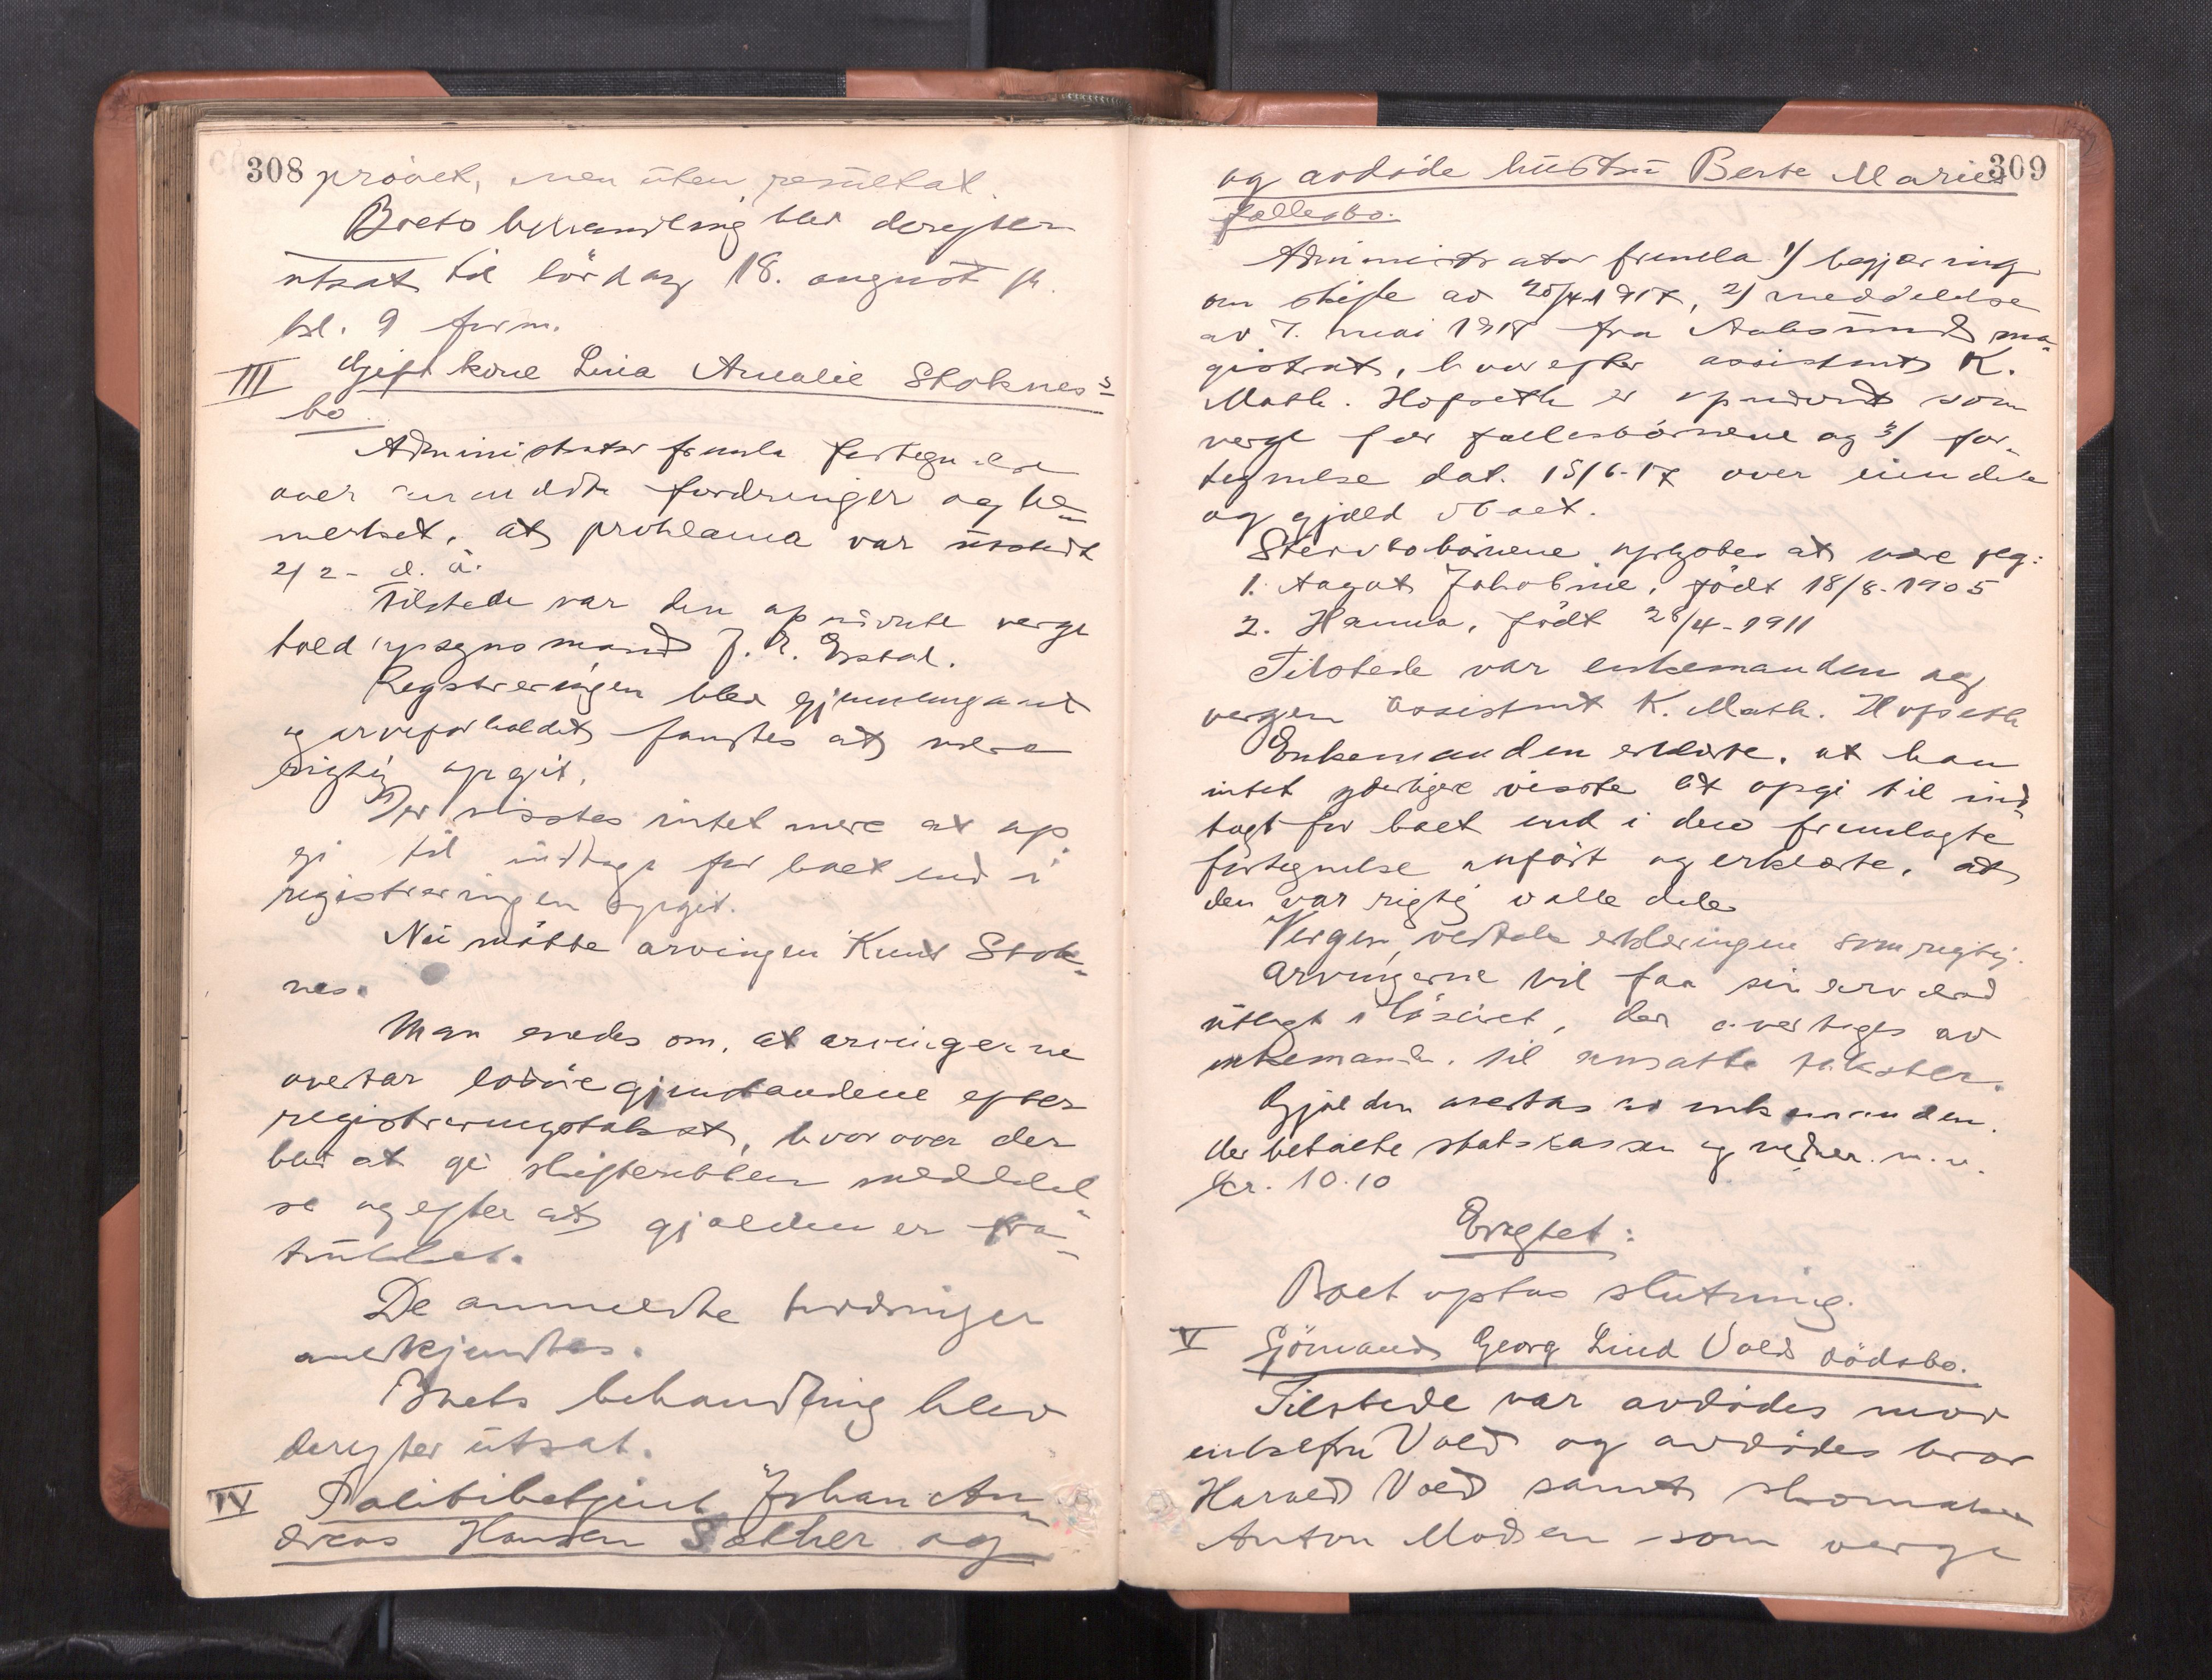 308 prövet, men uten resultat.
Boets behandling blev derefter
utsat til lördag 18. august
kl. 9 form.
III Gift kone Lina Amalie Stoknes's
bo.
Administrator fremla fortegnelse
over anmeldte fordringer og be-
merket, at proklama var utstedt
2/2- d. å.
Tilstede var den opnævnte verge
toldopsynsmand J. R. Erstad.
Registreringen blev gjennemgaat
og arveforholdet fandtes at være
rigtig opgit.
Der visstes intet mere at op-
gi til indtægt for boet end i
registreringen opgit.
Nu mötte arvingen Knut Stok-
nes.
Man enedes om, at arvingerne
overtar lösöregjenstandene efter
registreringstakst, hvorover der
blir at gi skifteretten meddelel-
se og efter at gjælden er fra-
trukket.
De anmeldte fordringer
anerkjendtes.
Boets behandling blev
derefter utsat.
IV Politibetjent Johan An-
dreas Hansen Sæther og
309
og avdöde hustru Berte Maries
fællesbo.
Administrator fremla 1/ begjæring
om skifte av 20/4 1917, 2/ meddelelse
av 7. mai 1917 fra Aalesunds ma-
gistrat, hvorefter assistent K.
Math. Hofseth er opnævnt som
verge for fællesbörnene og 3/ for-
tegnelse dat. 15/6-17 over eiendele
og gjæld i boet.
Stervbobörnene opgaves at være flg:
1. Aagot Jakobine, födt 18/8-1905
2. Hanna, födt 28/4-1911
Tilstede var enkemanden og
vergen assistent K. Math. Hofseth
Enkemanden erklærte, at han
intet yderligere visste at opgi til ind-
tægt for boet end i den fremlagte
fortegnelse anfört og erklærte, at
den var rigtig i alle dele.
Vergen vedtok erklæringen som rigtig.
Arvingerne vil faa sin arvelod
utlagt i lösöret, der overtages av
enkemanden til ansatte takster.
Gjælden overtas av enkemanden.
der betalte statskassen og vedker. m.v.
kr. 10.10
Eragtet:
Boet optas slutning.
V Sjömand Georg Lind Volds dödsbo.
Tilstede var avdödes mor
enkefru Vold og avdödes bror
Harald Vold samt skomaker
Anton Madsen som verge